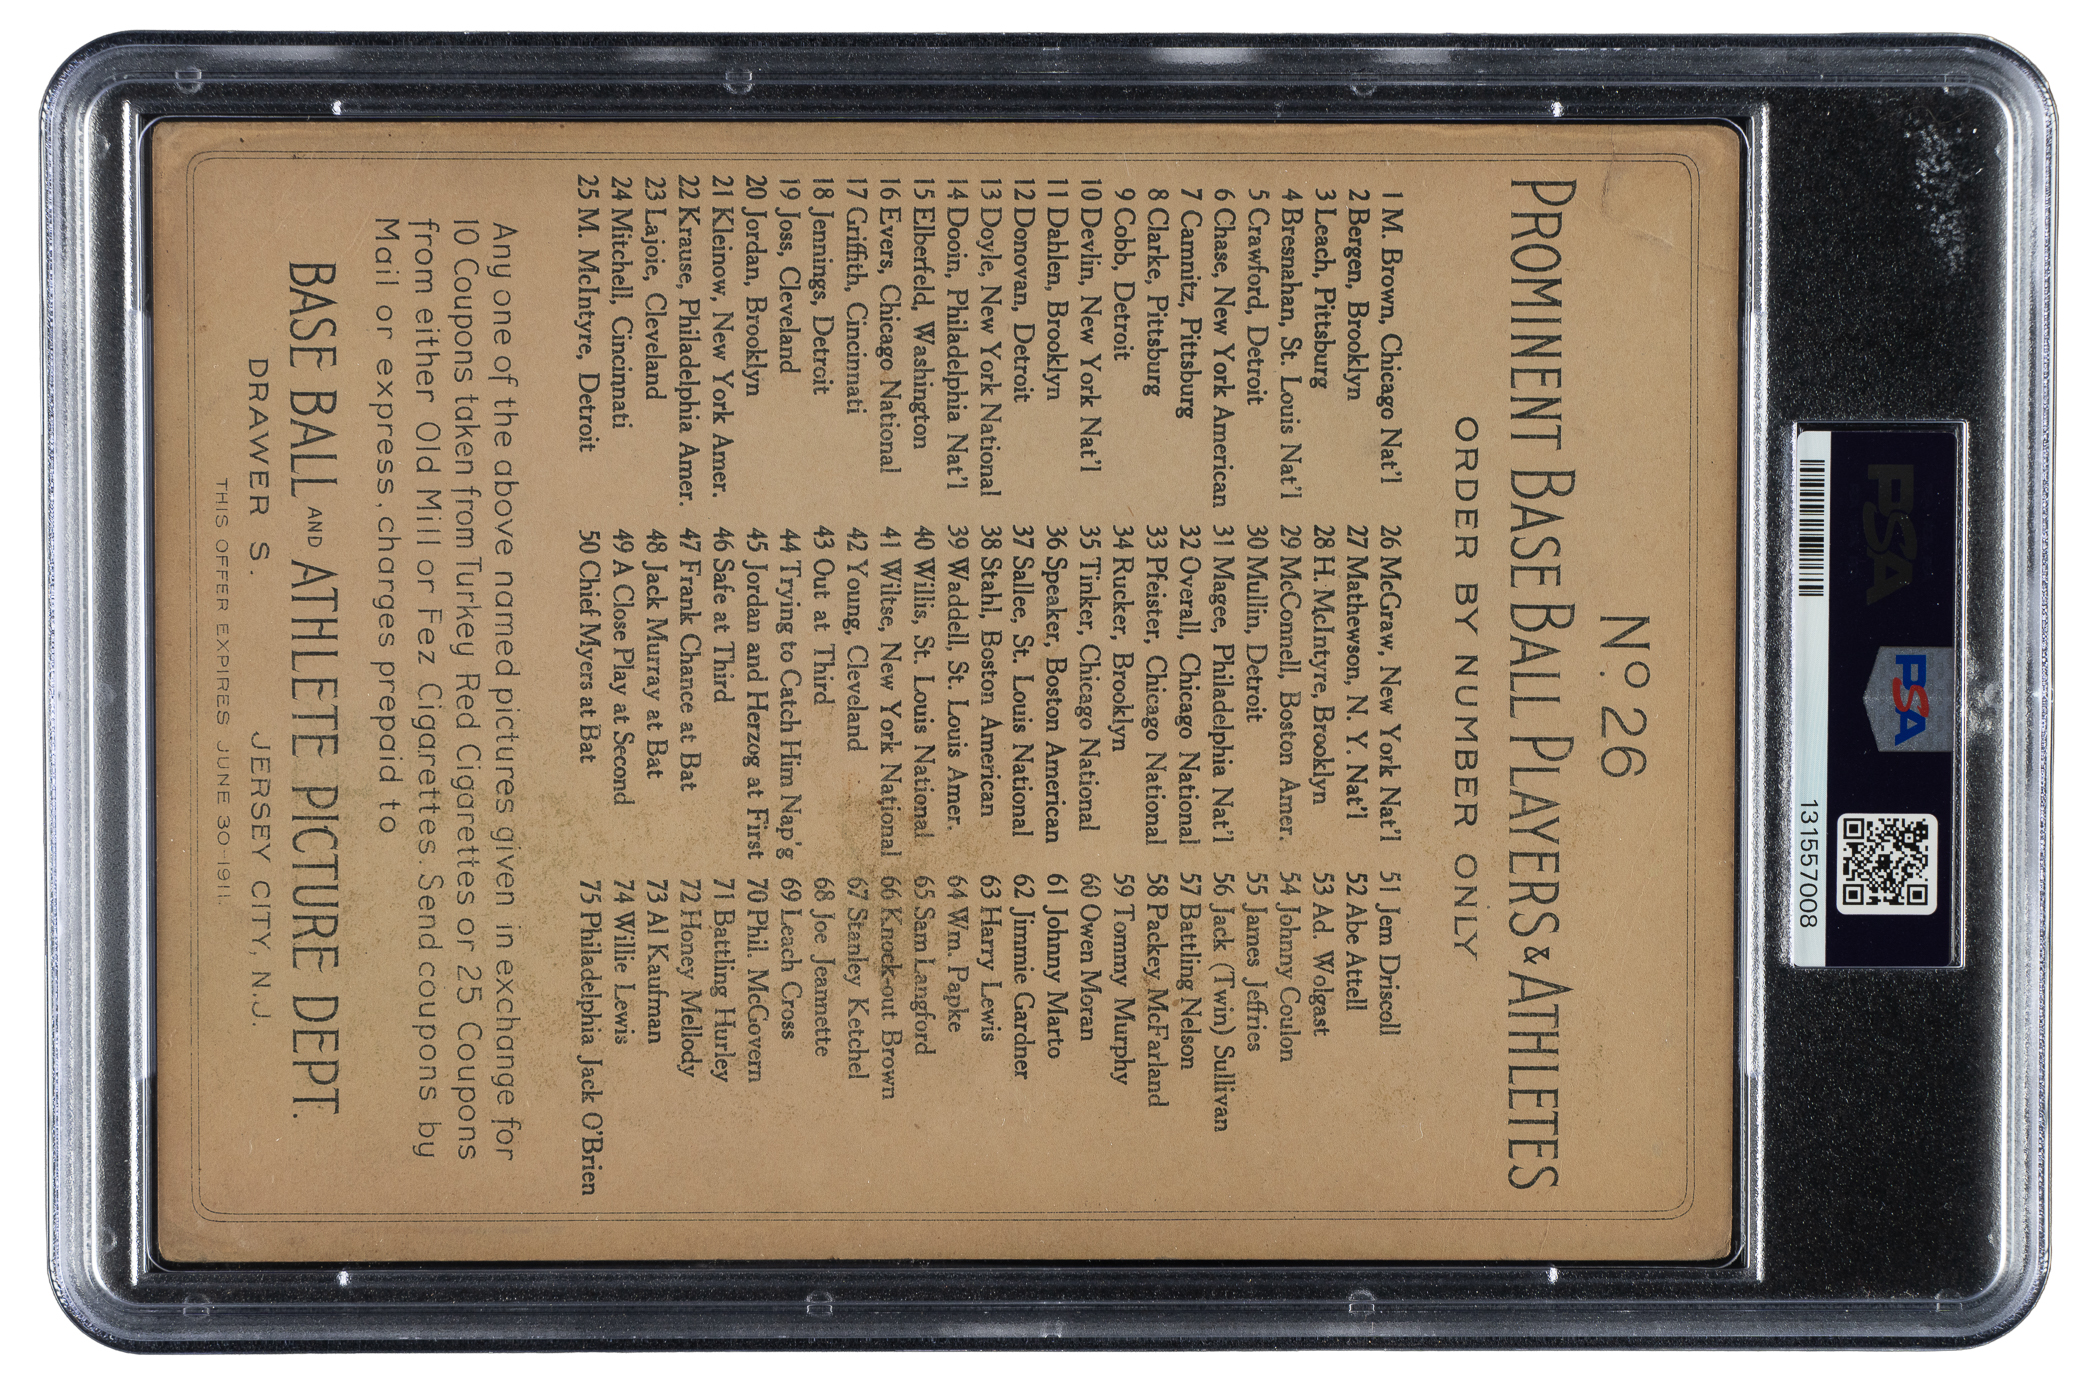 Nº 26
PROMINENT BASE BALL PLAYERS & ATHLETES
ORDER BY NUMBER ONLY
1 M. Brown, Chicago Nat'l
2 Bergen, Brooklyn
3 Leach, Pittsburg
4 Bresnahan, St. Louis Nat'l
5 Crawford, Detroit
6 Chase, New York American
7 Camnitz, Pittsburg
8 Clarke, Pittsburg
9 Cobb, Detroit
10 Devlin, New York Nat'l
11 Dahlen, Brooklyn
12 Donovan, Detroit
13 Doyle, New York National
14 Dooin, Philadelphia Nat'l
15 Elberfeld, Washington
16 Evers, Chicago National
17 Griffith, Cincinnati
18 Jennings, Detroit
19 Joss, Cleveland
20 Jordan, Brooklyn
21 Kleinow, New York Amer.
22 Krause, Philadelphia Amer.
23 Lajoie, Cleveland
24 Mitchell, Cincinnati
25 M. McIntyre, Detroit
26 McGraw, New York Nat'l
27 Mathewson, N. Y. Nat'l
28 H. McIntyre, Brooklyn
29 McConnell, Boston Amer.
30 Mullin, Detroit
31 Magee, Philadelphia Nat'l
32 Overall, Chicago National
33 Pfeister, Chicago National
34 Rucker, Brooklyn
35 Tinker, Chicago National
36 Speaker, Boston American
37 Sallee, St. Louis National
38 Stahl, Boston American
39 Waddell, St. Louis Amer.
40 Willis, St. Louis National
41 Wiltse, New York National
42 Young, Cleveland
43 Out at Third
44 Trying to Catch Him Nap'g
45 Jordan and Herzog at First
46 Safe at Third
47 Frank Chance at Bat
48 Jack Murray at Bat
49 A Close Play at Second
50 Chief Myers at Bat
51 Jem Driscoll
52 Abe Attell
53 Ad. Wolgast
54 Johnny Coulon
55 James Jeffries
56 Jack (Twin) Sullivan
57 Battling Nelson
58 Packey McFarland
59 Tommy Murphy
60 Owen Moran
61 Johnny Marto
62 Jimmie Gardner
63 Harry Lewis
64 Wm. Papke
65 Sam Langford
66 Knock-out Brown
67 Stanley Ketchel
68 Joe Jeannette
69 Leach Cross
70 Phil. McGovern
71 Battling Hurley
72 Honey Mellody
73 Al Kaufman
74 Willie Lewis
75 Philadelphia Jack O'Brien
Any one of the above named pictures given in exchange for
10 Coupons taken from Turkey Red Cigarettes or 25 Coupons
from either Old Mill or Fez Cigarettes. Send coupons by
Mail or express, charges prepaid to
BASE BALL AND ATHLETE PICTURE DEPT.
DRAWER S. JERSEY CITY, N.J.
THIS OFFER EXPIRES JUNE 30-1911.
PSA
PSA
131557008